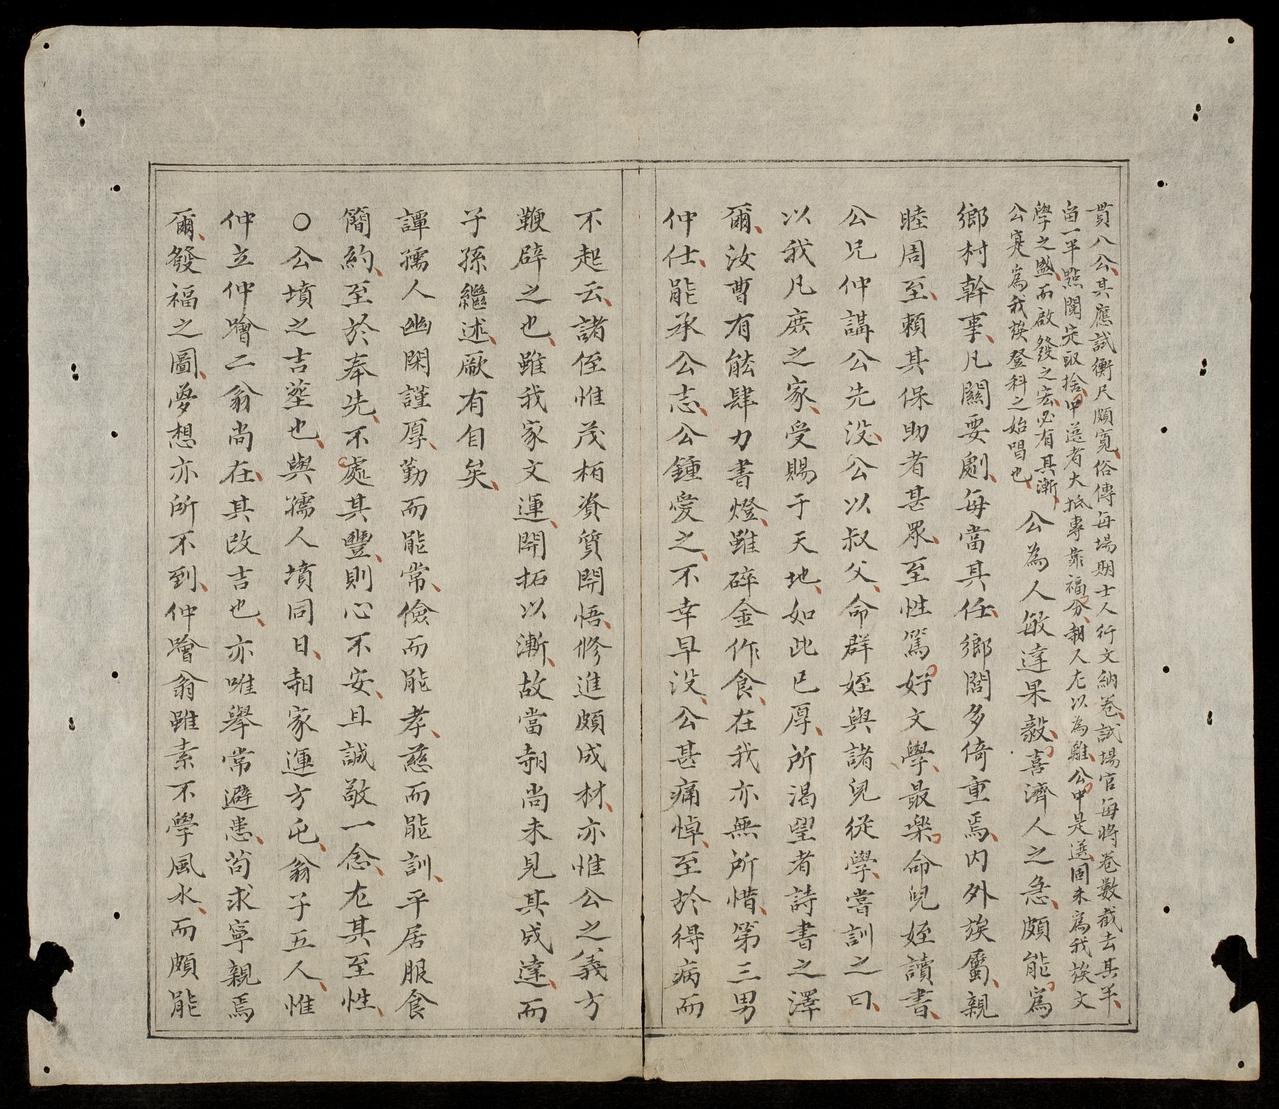 貫八公其應試衡尺頗寬俗傳每場期士人行文納卷試場官每將卷數截去其半
宙一半點閱完取捨中選者大抵專靠福分朝人尤以為難公中是選固未為我族文
學之盛而啟發之宏必有其漸
公寔為我族登科之始唱也
公為人敏達果毅喜濟人之急頗能為
鄉村幹事凡關要劇每當其任鄉閭多倚重焉內外族屬親
睦周至賴其保助者甚眾至性篤好文學最樂命兒姪讀書
公兄仲講公先沒公以叔父命群姪與諸兒從學嘗訓之曰
以我凡庶之家受賜于天地如此已厚所渴望者詩書之澤
爾汝曹有能肆力書燈雖碎金作食在我亦無所惜第三男
仲仕能承公志公鍾愛之不幸早沒公甚痛悼至於得病而
不起云諸侄惟茂栢資質開悟修進頗成材亦惟公之義方
鞭辟之也雖我家文運開拓以漸故當朝尚未見其成達而
子孫繼述厥有自矣
譚孺人幽閑謹厚勤而能常儉而能孝慈而能訓平居服食
簡約至於奉先不處其豐則心不安且誠敬一念尤其至性
○公墳之吉塋也與孺人墳同日朝家運方屯翁子五人惟
仲立仲噲二翁尚在其改吉也亦唯舉常避患苟求寧親焉
爾發福之圖夢想亦所不到仲噲翁雖素不學風水而頗能